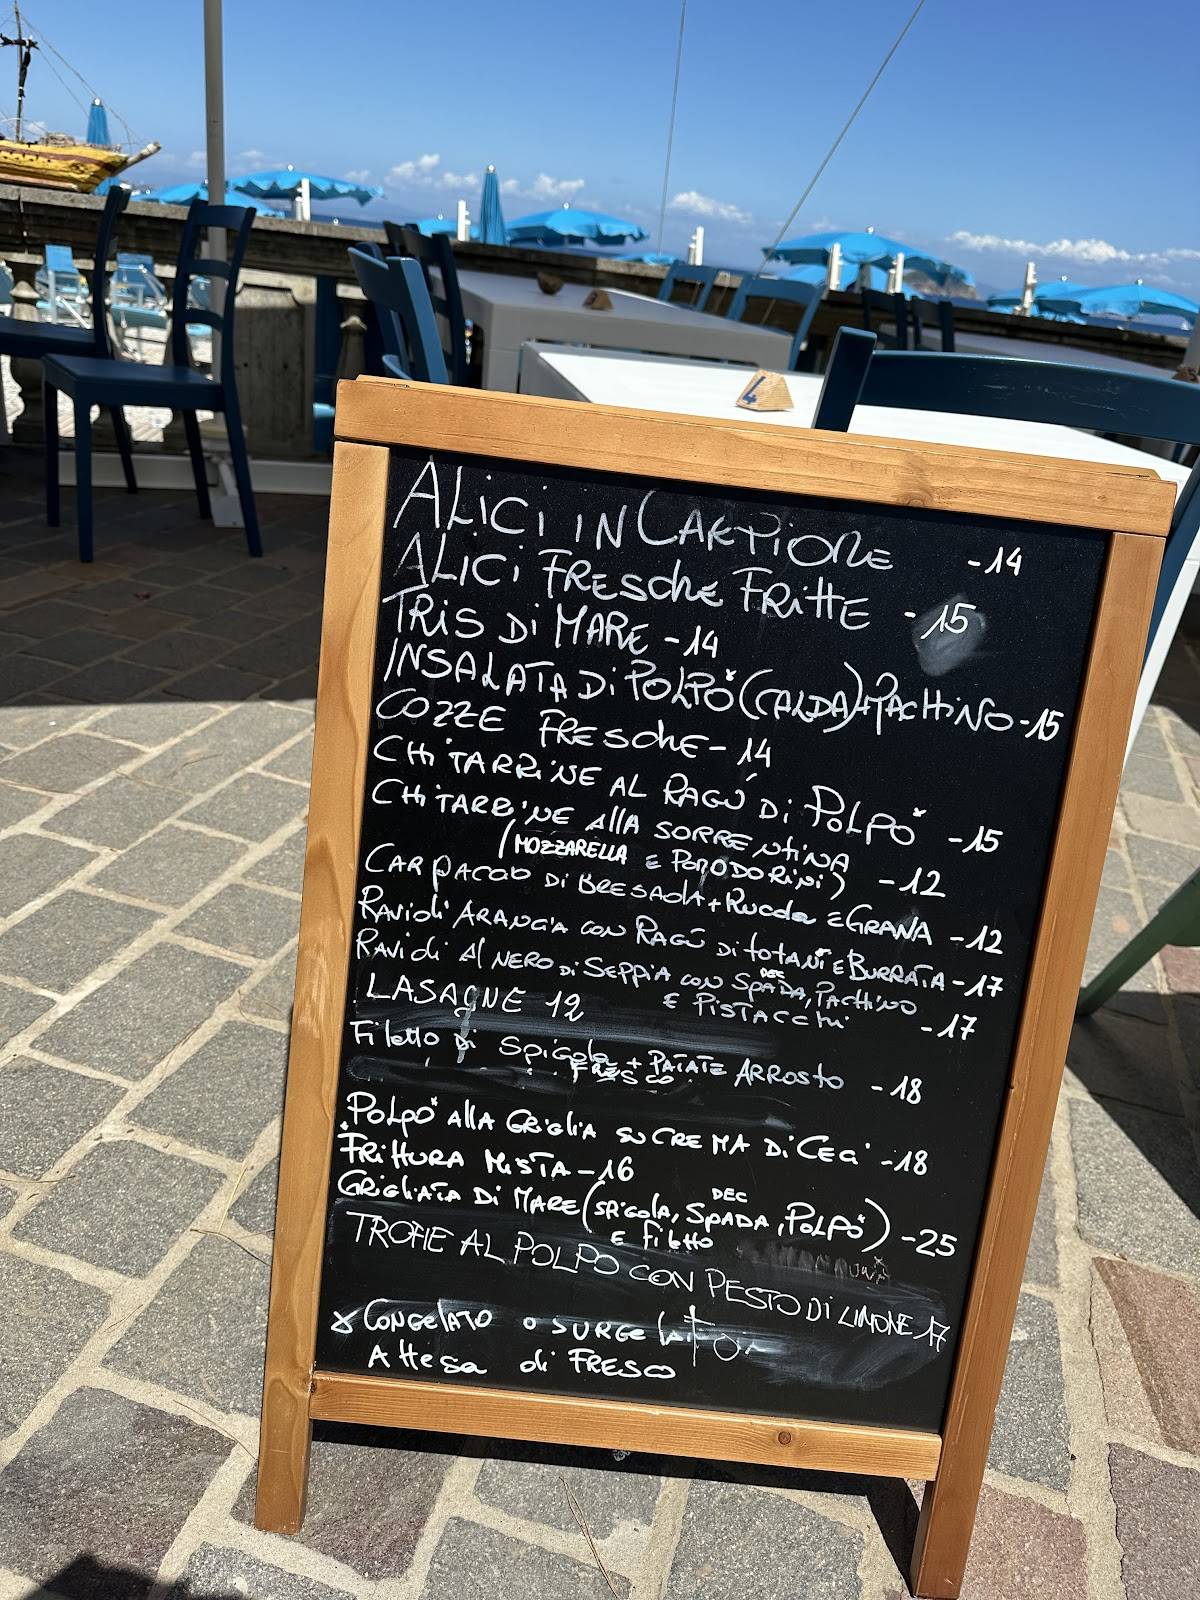 4
ALICI IN CARPIONE -14
ALICI FRESCHE FRITTE -15
TRIS DI MARE -14
INSALATA DI POLPO* (CALDA)+PACHINO -15
COZZE FRESCHE -14
CHITARRINE AL RAGÚ DI POLPO* -15
CHITARRINE ALLA SORRENTINA
(MOZZARELLA E POMODORINI) -12
CARPACCIO DI BRESAOLA + RUCOLA E GRANA -12
RAVIOLI ARANCIA CON RAGÚ DI TOTANI E BURRATA -17
RAVIOLI AL NERO DI SEPPIA CON SPADA DEC, PACHINO
E PISTACCHI -17
LASAGNE 12
FILETTO DI SPIGOLA + PATATE ARROSTO -18
FRESCO
POLPO* ALLA GRIGLIA SU CREMA DI CECI -18
FRITTURA MISTA -16
GRIGLIATA DI MARE (SPIGOLA, SPADA DEC, POLPO*) -25
E FILETTO
TROFIE AL POLPO CON PESTO DI LIMONE 17
x CONGELATO O SURGELATO IN
ATTESA DI FRESCO